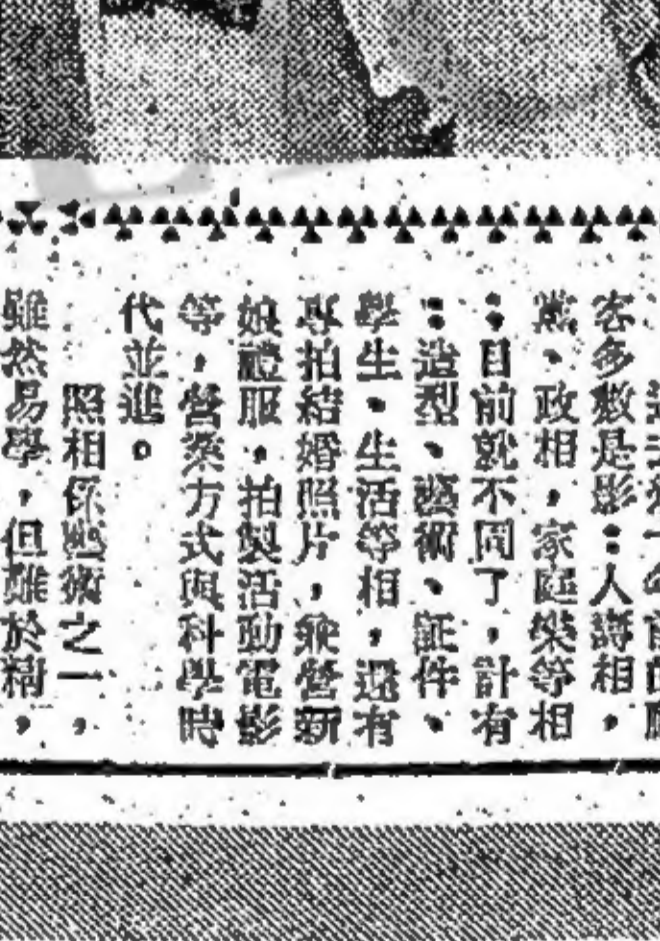 客多數是影：人壽相，
黨、政相，家庭樂等相
；目前就不同了，計有
：造型、藝術、証件、
學生、生活等相，還有
專拍結婚照片，兼營新
娘禮服，拍製活動電影
等，營業方式與科學時
代並進。
照相係藝術之一，
雖然易學，但難於精，